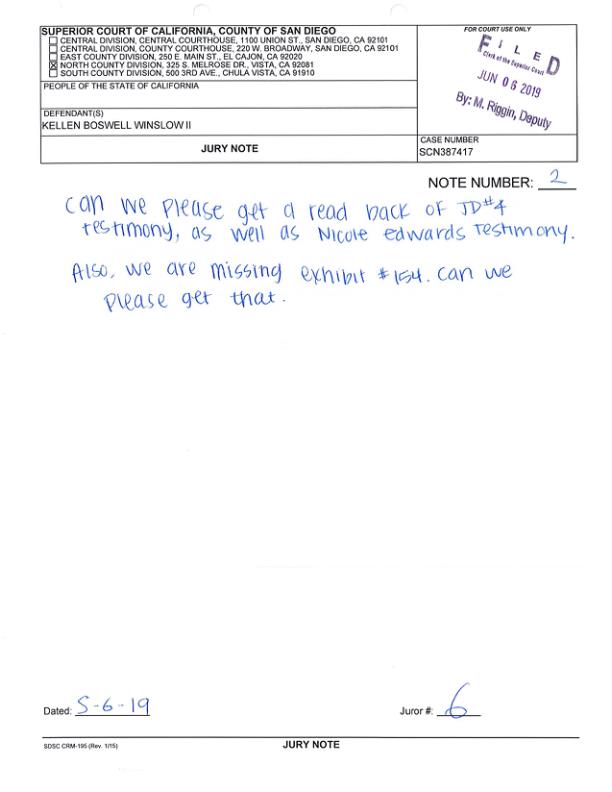 SUPERIOR COURT OF CALIFORNIA, COUNTY OF SAN DIEGO
CENTRAL DIVISION, CENTRAL COURTHOUSE, 1100 UNION ST., SAN DIEGO, CA 92101
CENTRAL DIVISION, COUNTY COURTHOUSE, 220 W. BROADWAY, SAN DIEGO, CA 92101
EAST COUNTY DIVISION, 250 E. MAIN ST., EL CAJON, CA 92020
NORTH COUNTY DIVISION, 325 S. MELROSE DR., VISTA, CA 92081
SOUTH COUNTY DIVISION, 500 3RD AVE., CHULA VISTA, CA 91910
PEOPLE OF THE STATE OF CALIFORNIA
DEFENDANT(S)
KELLEN BOSWELL WINSLOW II
JURY NOTE
FOR COURT USE ONLY
FILED
Clerk of the Superior Court
JUN 06 2019
By: M. Riggin, Deputy
CASE NUMBER
SCN387417
NOTE NUMBER: 2
Can we please get a read back of JD#4
testimony, as well as Nicole edwards testimony.
Also, we are missing exhibit #154. Can we
please get that.
Dated: 5-6-19
Juror #: 6
SDSC CRM-195 (Rev. 1/15)
JURY NOTE